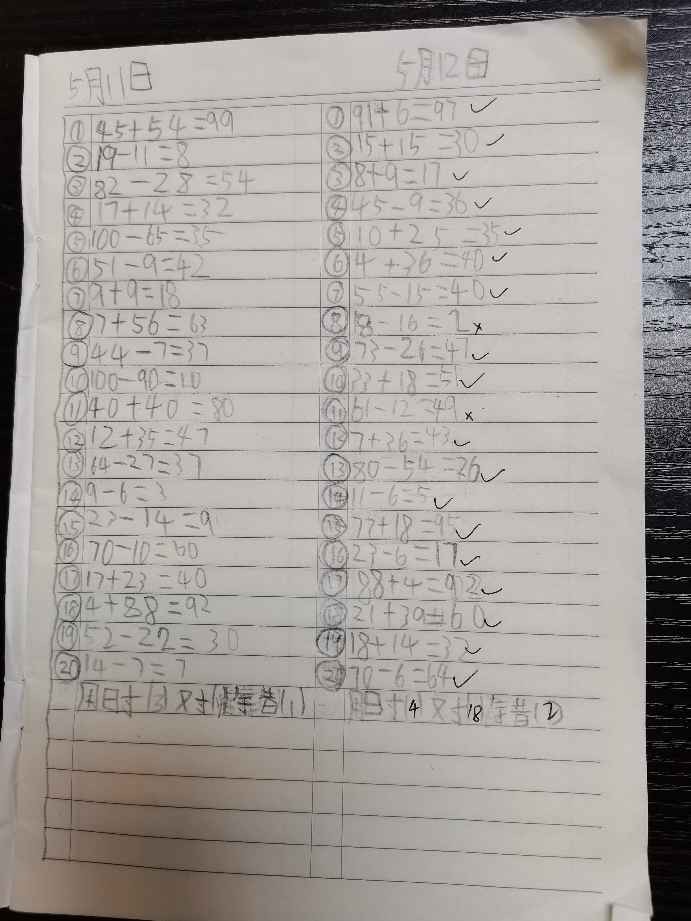 5月11日
① 45+54=99
② 19-11=8
③ 82-28=54
④ 17+14=32
⑤ 100-65=35
⑥ 51-9=42
⑦ 9+9=18
⑧ 7+56=63
⑨ 44-7=37
⑩ 100-90=10
⑪ 40+40=80
⑫ 12+35=47
⑬ 64-27=37
⑭ 9-6=3
⑮ 23-14=9
⑯ 70-10=60
⑰ 17+23=40
⑱ 4+88=92
⑲ 52-22=30
⑳ 14-7=7
5月12日
① 91+6=97 ✓
② 15+15=30 ✓
③ 8+9=17 ✓
④ 45-9=36 ✓
⑤ 10+25=35 ✓
⑥ 4+36=40 ✓
⑦ 55-15=40 ✓
⑧ 18-16=2 ×
⑨ 73-26=47 ✓
⑩ 33+18=51 ✓
⑪ 61-12=49 ×
⑫ 7+36=43 ✓
⑬ 80-54=26 ✓
⑭ 11-6=5 ✓
⑮ 77+18=95 ✓
⑯ 23-6=17 ✓
⑰ 88+4=92 ✓
⑱ 21+39=60 ✓
⑲ 18+14=32 ✓
⑳ 70-6=64 ✓